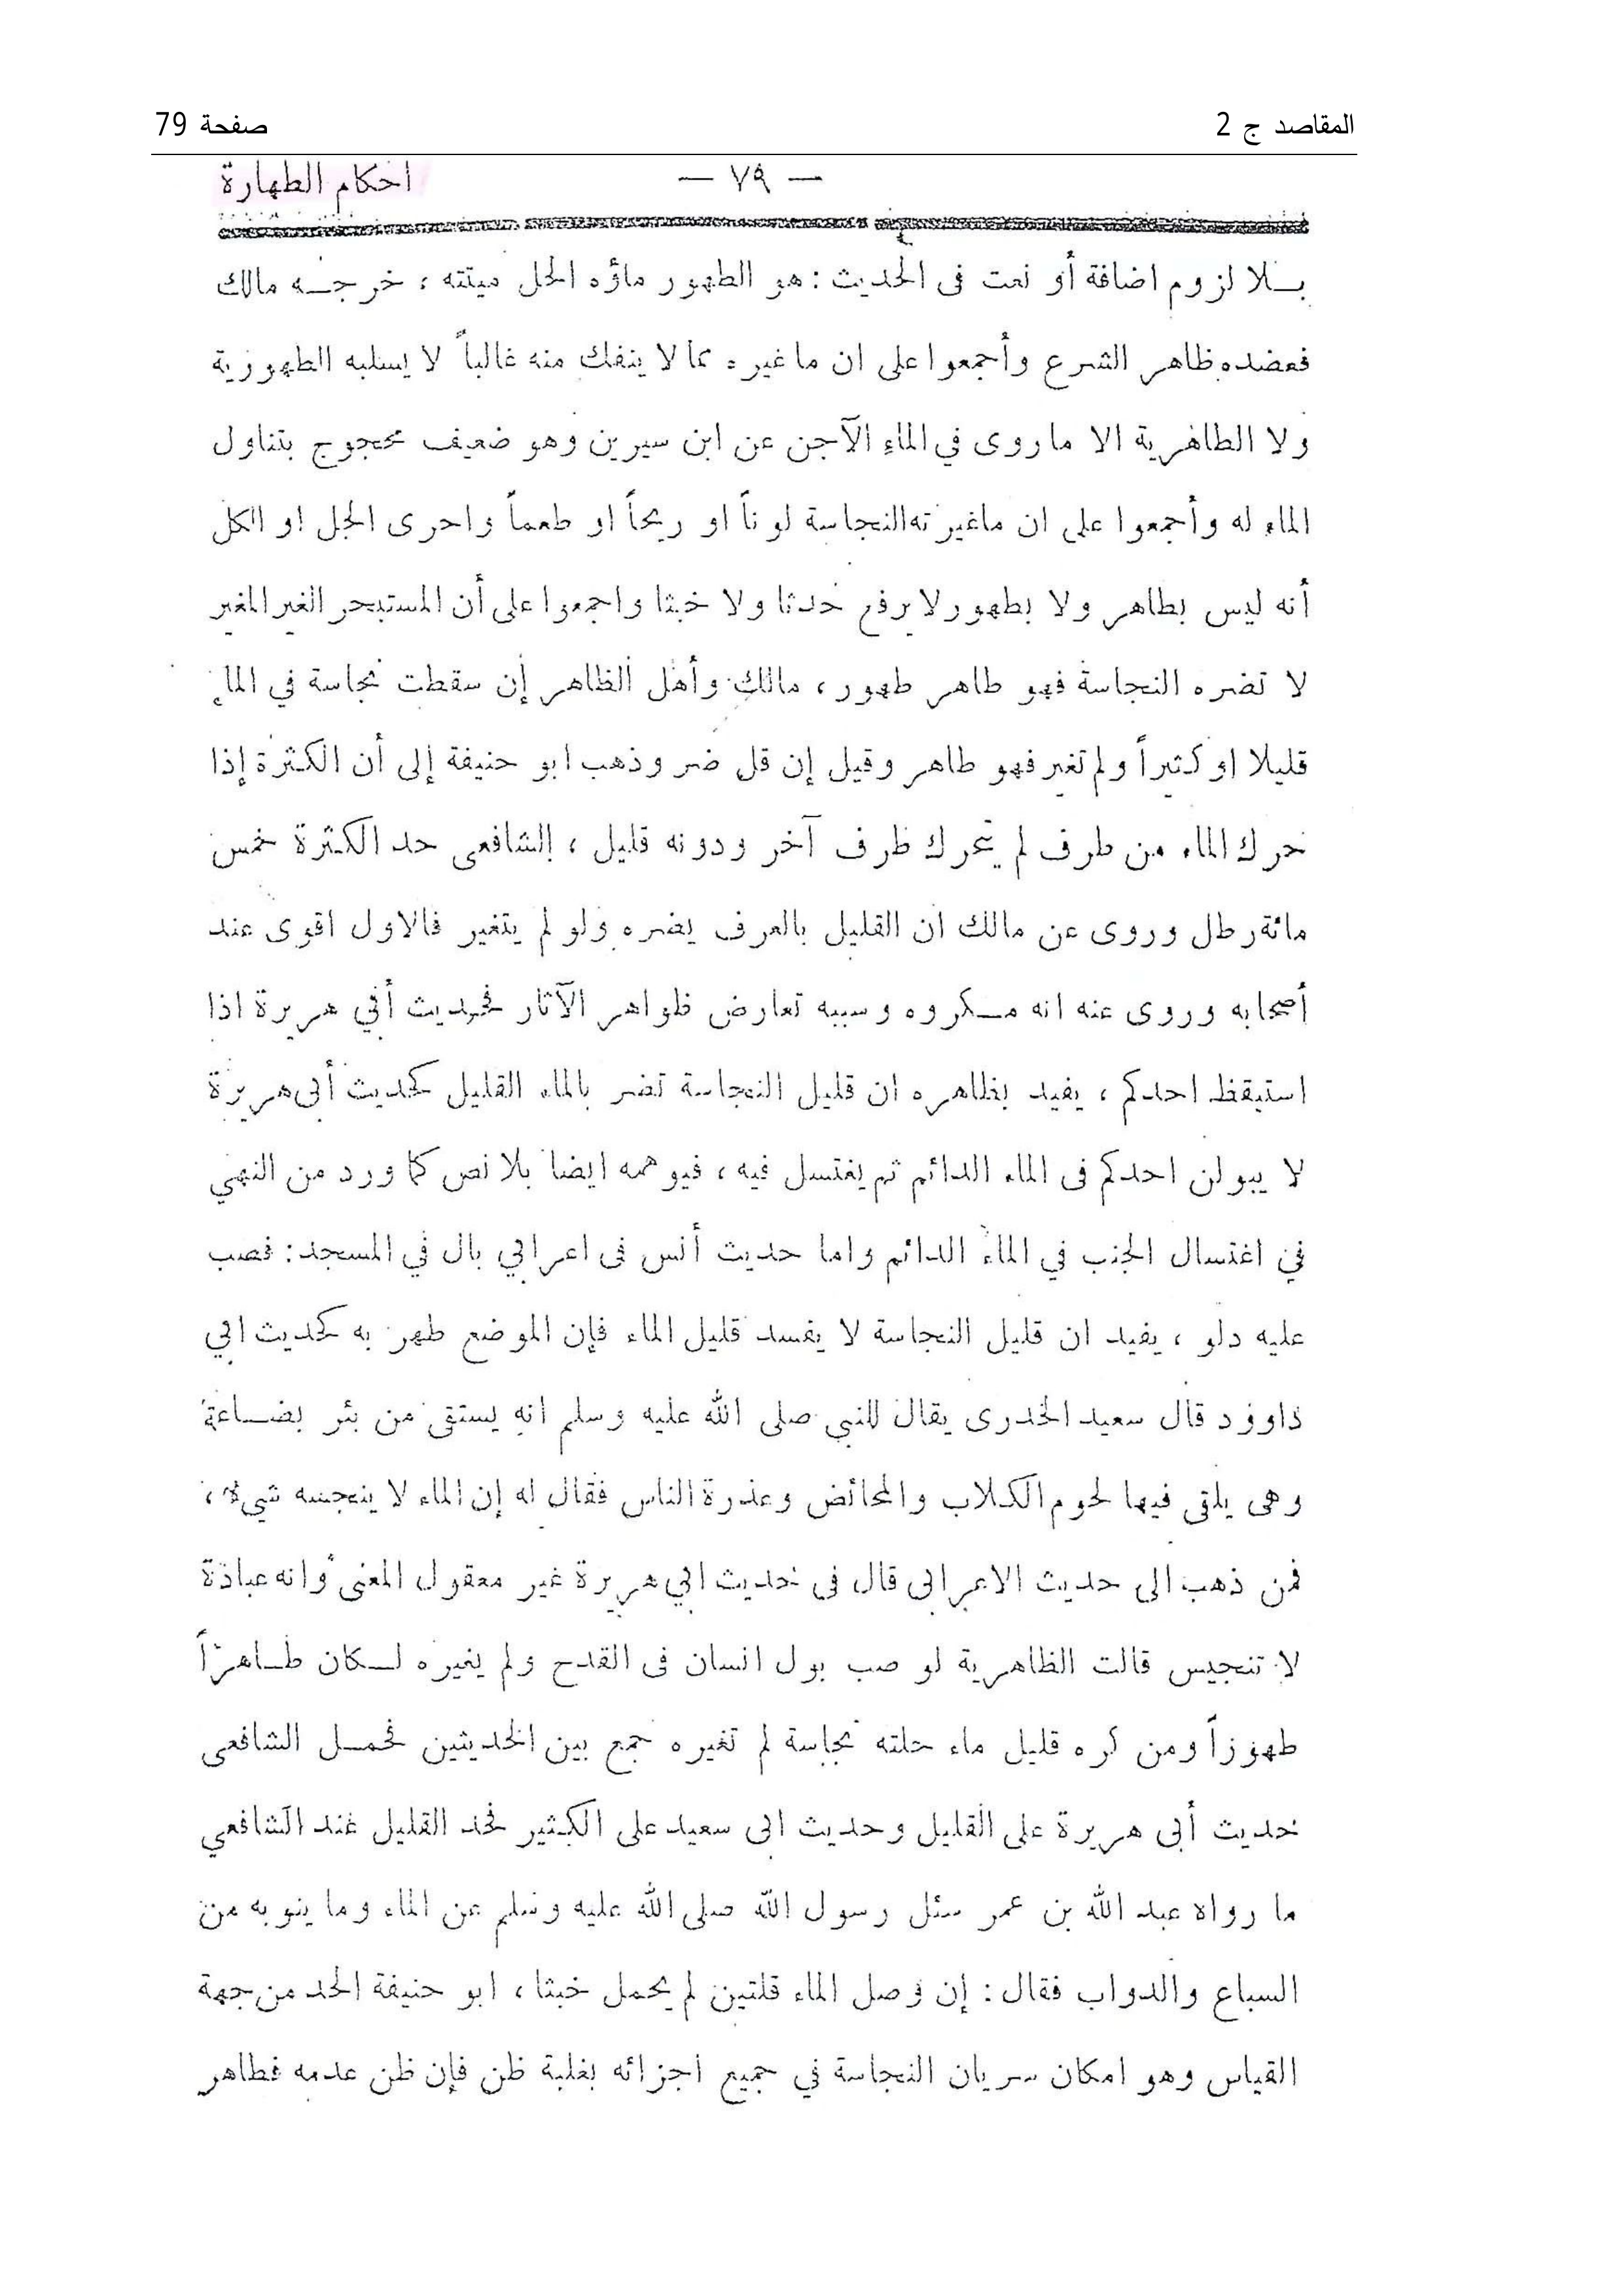 المقاصد ج 2
صفحة 79
— ٧٩ —
احكام الطهارة
بــلا لزوم اضافة أو نعت فى الحديث : هو الطهور ماؤه الحل ميتته ، خرجــه مالك
فعضده ظاهر الشرع وأجمعوا على ان ما غيره مما لا ينفك منه غالباً لا يسلبه الطهورية
ولا الطاهرية الا ما روى في الماء الآجن عن ابن سيرين وهو ضعيف محجوج بتناول
الماء له وأجمعوا على ان ماغيرته النجاسة لوناً او ريحاً او طعماً واحرى الجل او الكل
أنه ليس بطاهر ولا بطهور لا يرفع حدثا ولا خبثا واجمعوا على أن المستبحر الغير المغير
لا تضره النجاسة فهو طاهر طهور ، مالك وأهل الظاهر إن سقطت نجاسة في الماء
قليلا او كثيراً ولم تغير فهو طاهر وقيل إن قل ضر وذهب ابو حنيفة إلى أن الكثرة إذا
حرك الماء من طرف لم يتحرك طرف آخر ودونه قليل ، الشافعى حد الكثرة خمس
مائة رطل وروى عن مالك ان القليل بالعرف يضره ولو لم يتغير فالاول اقوى عند
أصحابه وروى عنه انه مـكروه وسببه تعارض ظواهر الآثار فحديث أبي هريرة اذا
استيقظ احدكم ، يفيد بظاهره ان قليل النجاسة تضر بالماء القليل كحديث أبى هريرة
لا يبولن احدكم فى الماء الدائم ثم يغتسل فيه ، فيوهمه ايضا بلا نص كما ورد من النهي
في اغتسال الجنب في الماء الدائم واما حديث أنس فى اعرابي بال في المسجد : فصب
عليه دلو ، يفيد ان قليل النجاسة لا يفسد قليل الماء فإن الموضع طهر به كحديث ابي
داوود قال سعيد الخدرى يقال للنبي صلى الله عليه وسلم انه يستقى من بئر بضــاعة
وهى يلقى فيها لحوم الكلاب والمحائض وعذرة الناس فقال له إن الماء لا ينجسه شيء ،
فمن ذهب الى حديث الاعرابى قال فى حديث ابي هريرة غير معقول المعنى وانه عبادة
لا تنجيس قالت الظاهرية لو صب بول انسان فى القدح ولم يغيره لــكان طــاهراً
طهوراً ومن كره قليل ماء حلته نجاسة لم تغيره جمع بين الحديثين فحمــل الشافعى
حديث أبى هريرة على القليل وحديث ابى سعيد على الكثير فحد القليل عند الشافعي
ما رواه عبد الله بن عمر سئل رسول الله صلى الله عليه وسلم عن الماء وما ينوبه من
السباع والدواب فقال : إن وصل الماء قلتين لم يحمل خبثا ، ابو حنيفة الحد من جهة
القياس وهو امكان سريان النجاسة في جميع اجزائه بغلبة ظن فإن ظن عدمه فطاهر